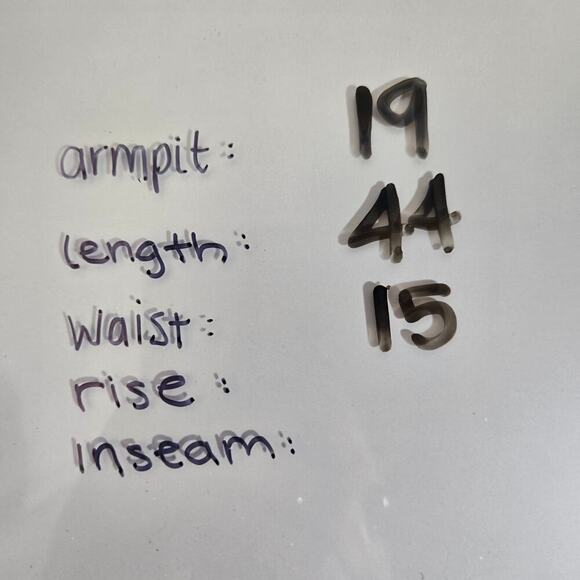 armpit: 19
length: 44
waist: 15
rise:
inseam: